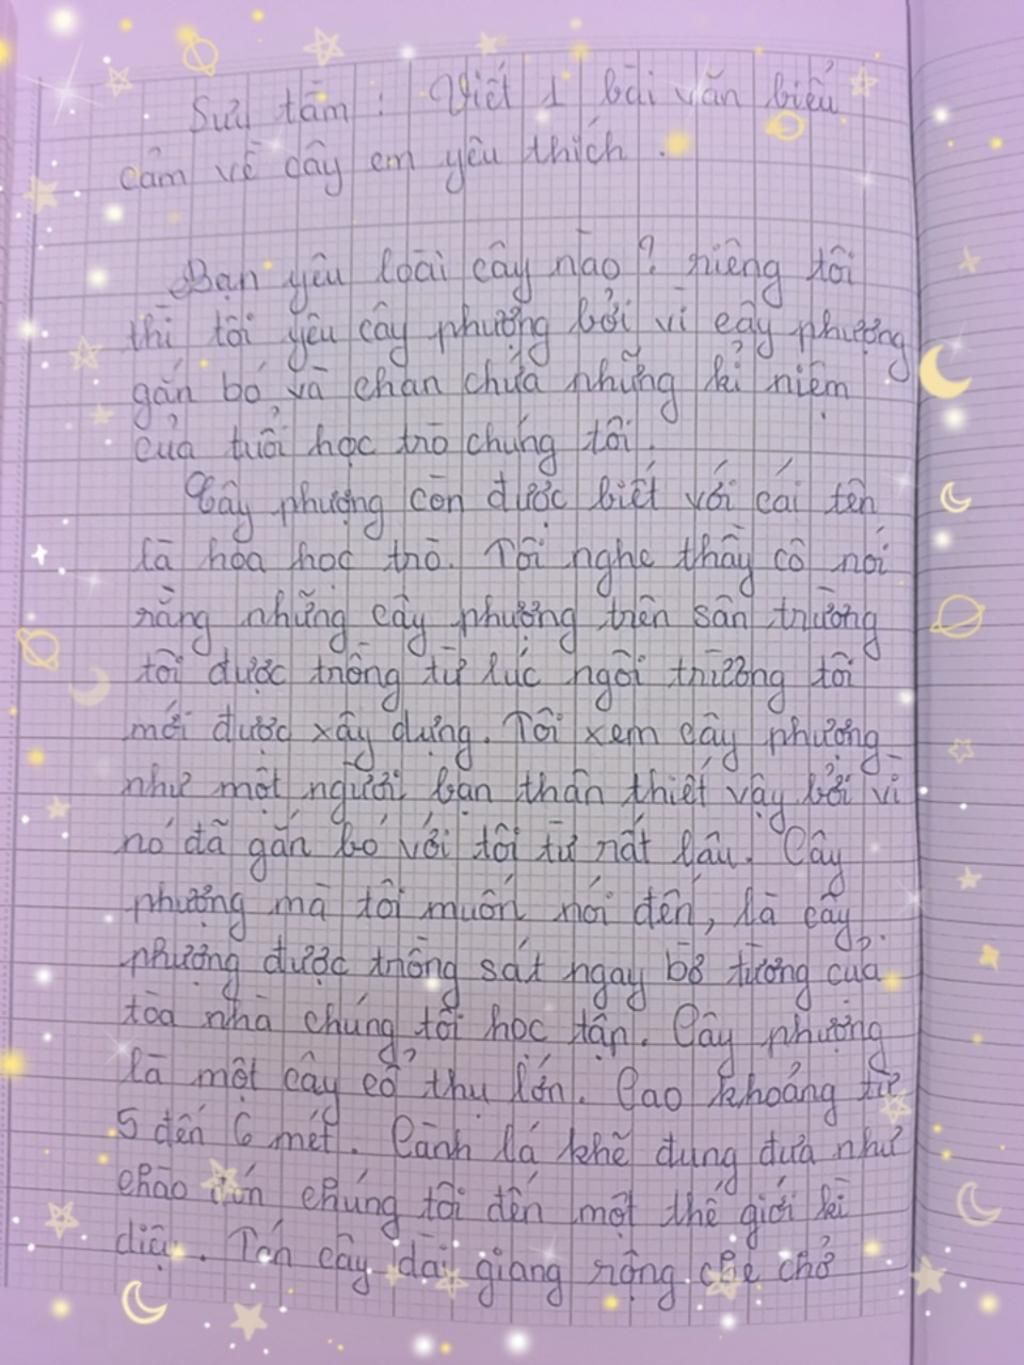 Sưu tầm : Viết 1 bài văn biểu
cảm về cây em yêu thích .
Bạn yêu loài cây nào ? riêng tôi
thì tôi yêu cây phượng bởi vì cây phượng
gắn bó và chan chứa những kỉ niệm
của tuổi học trò chúng tôi.
Cây phượng còn được biết với cái tên
là hoa học trò. Tôi nghe thầy cô nói
rằng những cây phượng trên sân trường
tôi được trồng từ lúc ngôi trường tôi
mới được xây dựng. Tôi xem cây phượng
như một người bạn thân thiết vậy bởi vì
nó đã gắn bó với tôi từ rất lâu. Cây
phượng mà tôi muốn nói đến, là cây
phượng được trồng sát ngay bờ tường của
tòa nhà chúng tôi học tập. Cây phượng
là một cây cổ thụ lớn. Cao khoảng từ
5 đến 6 mét. Cành lá khẽ dung đưa như
chào đón chúng tôi đến một thế giới kì
diệu. Tán cây dài giang rộng che chở